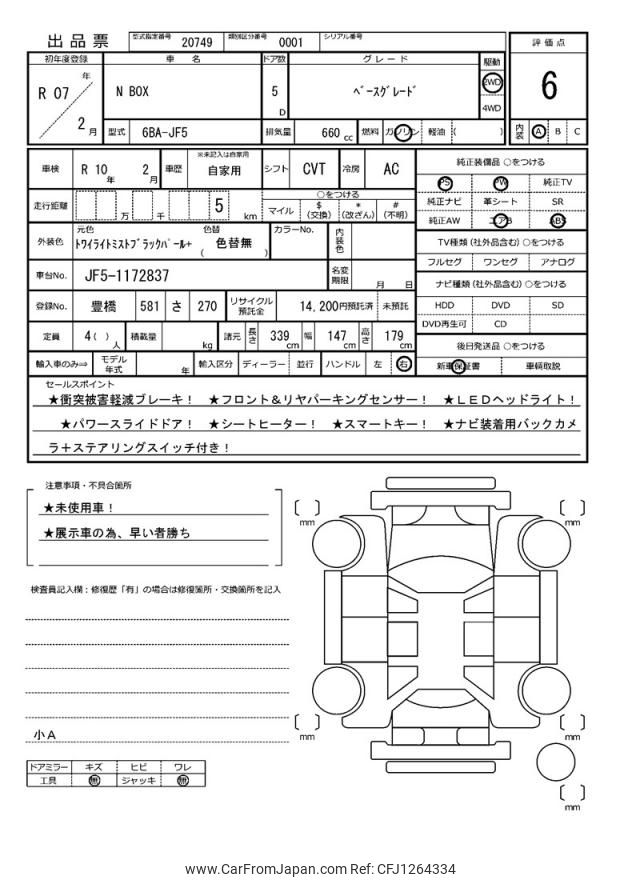 出品票 型式指定番号 20749 類別区分番号 0001 シリアル番号
評価点
6
内装 A B C
初年度登録 車名 ドア数 グレード 駆動
R 07 年 2 月
N BOX 5 D ベースグレード 2WD 4WD
型式 6BA-JF5 排気量 660 cc 燃料 ガソリン 軽油 ( )
車検 R 10 年 2 月 車歴 ※未記入は自家用 自家用 シフト CVT 冷房 AC
走行距離 万 千 5 km
○をつける
マイル $ (交換) * (改ざん) # (不明)
外装色 元色 トワイライトミストブラックパール+ 色替 ( 色替無 ) カラーNo. 内装色
車台No. JF5-1172837 名変期限 月 日
登録No. 豊橋 581 さ 270 リサイクル預託金 14,200円預託済 未預託
定員 4( )人 積載量 kg 諸元 長さ 339 cm 幅 147 cm 高さ 179 cm
輸入車のみ⇒ モデル年式 年 輸入区分 ディーラー 並行 ハンドル 左 右
純正装備品 ○をつける
PS PW 純正TV
純正ナビ 革シート SR
純正AW エアB ABS
TV種類 (社外品含む) ○をつける
フルセグ ワンセグ アナログ
ナビ種類 (社外品含む) ○をつける
HDD DVD SD
DVD再生可 CD
後日発送品 ○をつける
新車保証書 車輌取説
セールスポイント
★衝突被害軽減ブレーキ! ★フロント&リヤパーキングセンサー! ★LEDヘッドライト!
★パワースライドドア! ★シートヒーター! ★スマートキー! ★ナビ装着用バックカメ
ラ+ステアリングスイッチ付き!
注意事項・不具合箇所
★未使用車!
★展示車の為、早い者勝ち
検査員記入欄:修復歴「有」の場合は修復箇所・交換箇所を記入
小A
ドアミラー キズ ヒビ ワレ
工具 無 ジャッキ 無
[ ] mm
[ ] mm
[ ] mm
[ ] mm
[ ] mm
www.CarFromJapan.com Ref: CFJ1264334